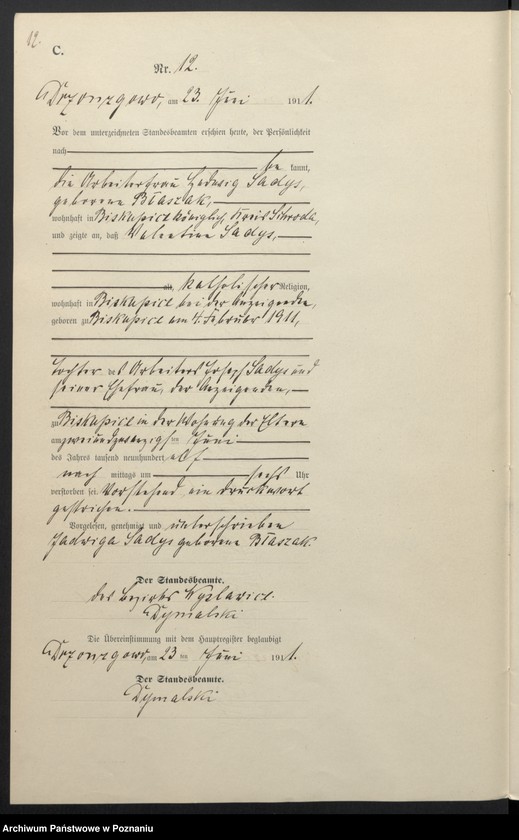 12.
C.
Nr. 12.
am 23. Juni 1911.
Vor dem unterzeichneten Standesbeamten erschien heute, der Persönlichkeit
nach
be kannt,
die Arbeiterfrau Hedwig Sadys,
geborene Błaszak,
wohnhaft in Biskupice königlich, Kreis Schroda,
und zeigte an, daß Valentine Sadys,
alt, katholischer Religion,
wohnhaft in Biskupice bei der Anzeigenden,
geboren zu Biskupice am 4. Februar 1911,
Tochter des Arbeiters Joseph Sadys und
seiner Ehefrau, der Anzeigenden,
zu Biskupice in der Wohnung der Eltern
am zweiundzwanzigsten Juni
des Jahres tausend neunhundert elf
nach mittags um sechs Uhr
verstorben sei. Vorstehend ein Druckwort
gestrichen.
Vorgelesen, genehmigt und unterschrieben
Jadwiga Sadys geborene Błaszak.
Der Standesbeamte.
des Bezirks
Dymalski
Die Übereinstimmung mit dem Hauptregister beglaubigt
am 23 ten Juni 1911.
Der Standesbeamte.
Dymalski
Archiwum Państwowe w Poznaniu